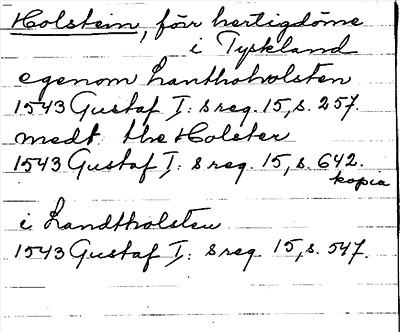 Holstein, förr hertigdöme
i Tyskland
egenom Lantthoholsten
1543 Gustaf I: s reg. 15, s. 257.
medt the Holster
1543 Gustaf I: s reg. 15, s. 642.
kopia
i Landtholsten
1543 Gustaf I: s reg. 15, s. 547.